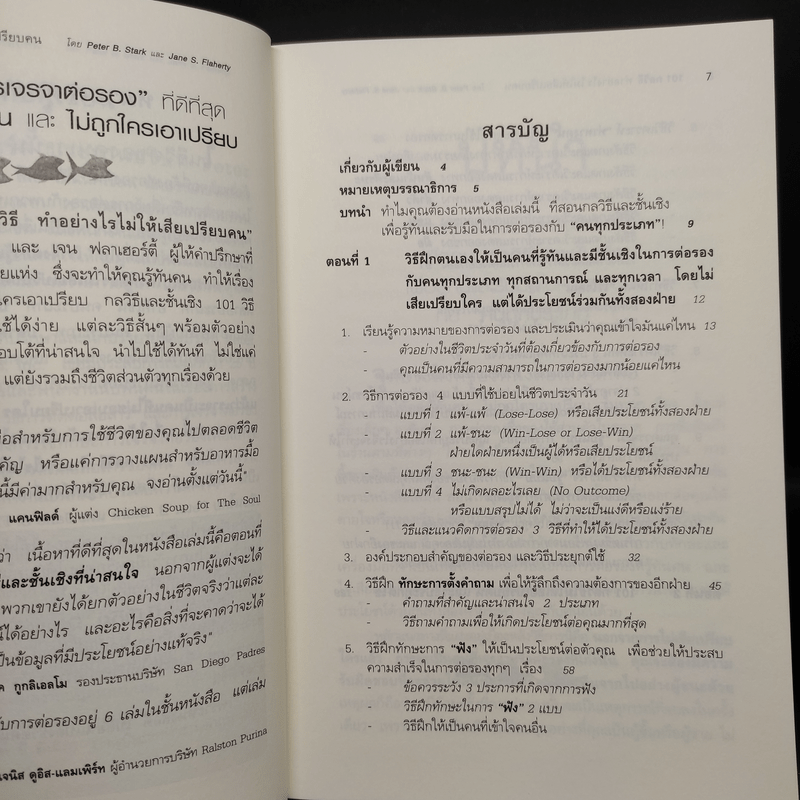 ปรียบคน โดย Peter B. Stark และ Jane S. Flaherty
รเจรจาต่อรอง” ที่ดีที่สุด
น และ ไม่ถูกใครเอาเปรียบ
วิธี ทำอย่างไรไม่ให้เสียเปรียบคน”
และ เจน ฟลาเฮอร์ตี้ ผู้ให้คำปรึกษาที่
ยแห่ง ซึ่งจะทำให้คุณรู้ทันคน ทำให้เรื่อง
นใครเอาเปรียบ กลวิธีและชั้นเชิง 101 วิธี
ใช้ได้ง่าย แต่ละวิธีสั้นๆ พร้อมตัวอย่าง
อบโต้ที่น่าสนใจ นำไปใช้ได้ทันที ไม่ใช่แค่
แต่ยังรวมถึงชีวิตส่วนตัวทุกเรื่องด้วย
อสำหรับการใช้ชีวิตของคุณไปตลอดชีวิต
คัญ หรือแค่การวางแผนสำหรับอาหารมื้อ
นี้มีค่ามากสำหรับคุณ จงอ่านตั้งแต่วันนี้”
แคนฟิลด์ ผู้แต่ง Chicken Soup for The Soul
ว่า เนื้อหาที่ดีที่สุดในหนังสือเล่มนี้คือตอนที่
และชั้นเชิงที่น่าสนใจ นอกจากผู้แต่งจะได้
พวกเขายังได้ยกตัวอย่างในชีวิตจริงว่าแต่ละ
น์ได้อย่างไร และอะไรคือสิ่งที่จะคาดว่าจะได้
ป็นข้อมูลที่มีประโยชน์อย่างแท้จริง”
ค กูกลิเอลโม รองประธานบริษัท San Diego Padres
ับการต่อรองอยู่ 6 เล่มในชั้นหนังสือ แต่เล่ม
เจนิส ดูอิส-แลมเพิร์ท ผู้อำนวยการบริษัท Ralston Purina
7
สารบัญ
เกี่ยวกับผู้เขียน 4
หมายเหตุบรรณาธิการ 5
บทนำ ทำไมคุณต้องอ่านหนังสือเล่มนี้ ที่สอนกลวิธีและชั้นเชิง
เพื่อรู้ทันและรับมือในการต่อรองกับ “คนทุกประเภท”! 9
ตอนที่ 1 วิธีฝึกตนเองให้เป็นคนที่รู้ทันและมีชั้นเชิงในการต่อรอง
กับคนทุกประเภท ทุกสถานการณ์ และทุกเวลา โดยไม่
เสียเปรียบใคร แต่ได้ประโยชน์ร่วมกันทั้งสองฝ่าย 12
1. เรียนรู้ความหมายของการต่อรอง และประเมินว่าคุณเข้าใจมันแค่ไหน 13
- ตัวอย่างในชีวิตประจำวันที่ต้องเกี่ยวข้องกับการต่อรอง
- คุณเป็นคนที่มีความสามารถในการต่อรองมากน้อยแค่ไหน
2. วิธีการต่อรอง 4 แบบที่ใช้บ่อยในชีวิตประจำวัน 21
- แบบที่ 1 แพ้-แพ้ (Lose-Lose) หรือเสียประโยชน์ทั้งสองฝ่าย
- แบบที่ 2 แพ้-ชนะ (Win-Lose or Lose-Win)
ฝ่ายใดฝ่ายหนึ่งเป็นผู้ได้หรือเสียประโยชน์
- แบบที่ 3 ชนะ-ชนะ (Win-Win) หรือได้ประโยชน์ทั้งสองฝ่าย
- แบบที่ 4 ไม่เกิดผลอะไรเลย (No Outcome)
หรือแบบสรุปไม่ได้ ไม่ว่าจะเป็นแง่ดีหรือแง่ร้าย
- วิธีและแนวคิดการต่อรอง 3 วิธีที่ทำให้ได้ประโยชน์ทั้งสองฝ่าย
3. องค์ประกอบสำคัญของต่อรอง และวิธีประยุกต์ใช้ 32
4. วิธีฝึก ทักษะการตั้งคำถาม เพื่อให้รู้ลึกถึงความต้องการของอีกฝ่าย 45
- คำถามที่สำคัญและน่าสนใจ 2 ประเภท
- วิธีถามคำถามเพื่อให้เกิดประโยชน์ต่อคุณมากที่สุด
5. วิธีฝึกทักษะการ “ฟัง” ให้เป็นประโยชน์ต่อตัวคุณ เพื่อช่วยให้ประสบ
ความสำเร็จในการต่อรองทุกๆ เรื่อง 58
- ข้อควรระวัง 3 ประการที่เกิดจากการฟัง
- วิธีฝึกทักษะในการ “ฟัง” 2 แบบ
- วิธีฝึกให้เป็นคนที่เข้าใจคนอื่น